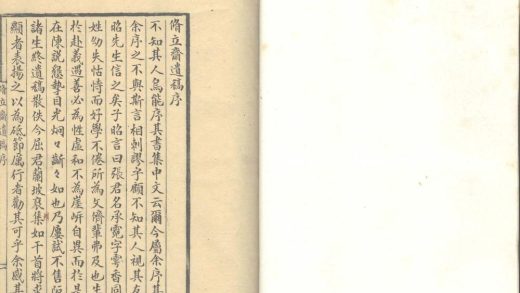 脩立齋遺稿序
不知其人烏能序其書集中文云爾今屬余序其
余序之不與斯言相刺謬乎顧不知其人視其友
昭先生信之矣子昭言曰張君名承寬字雩香同
姓幼失怙恃而好學不倦所為文儕輩弗及也生
於赴義遇善必為性虛和不為崖岸自異而於是
在陳說懇摯目光炯々斷々如也乃屢試不售阨
諸生終遺稿散佚今屈君蘭坡裒集如干首將求
顯者表揚之以為砥節厲行者勸其可乎余感其
脩立齋遺稿序